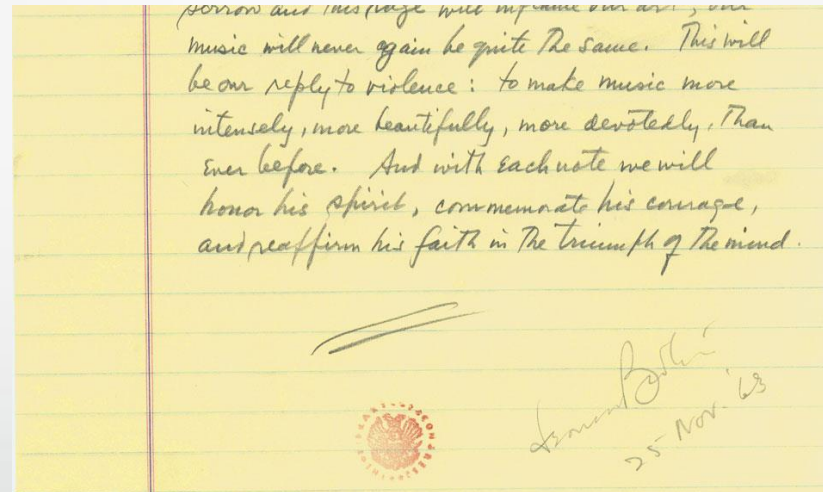 sorrow and this rage will inflame our art; our
music will never again be quite the same. This will
be our reply to violence: to make music more
intensely, more beautifully, more devotedly, than
ever before. And with each note we will
honor his spirit, commemorate his courage,
and reaffirm his faith in the triumph of the mind.
25 Nov. '63